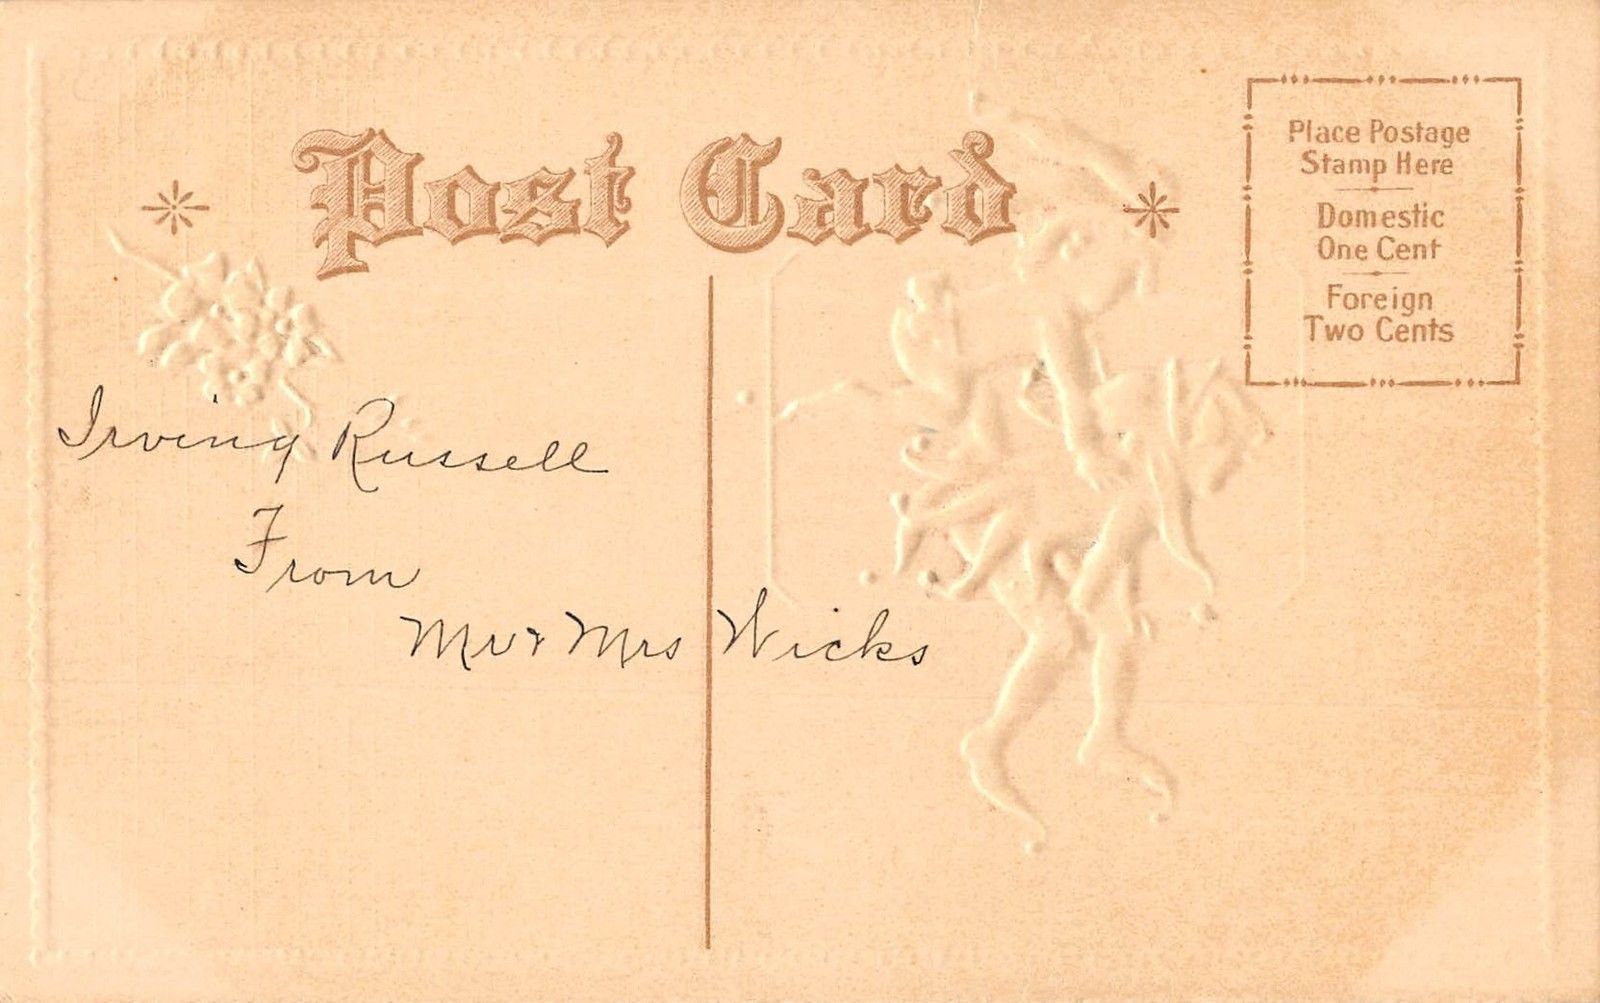 Post Card
Place Postage
Stamp Here
Domestic
One Cent
Foreign
Two Cents
Irving Russell
From
Mr & Mrs Wicks